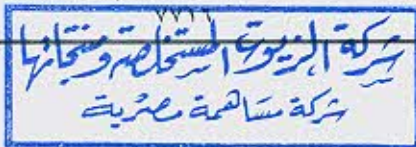 ٧٧١٦
شركة الزيوت المستخلصة ومنتجاتها
شركة مساهمة مصرية